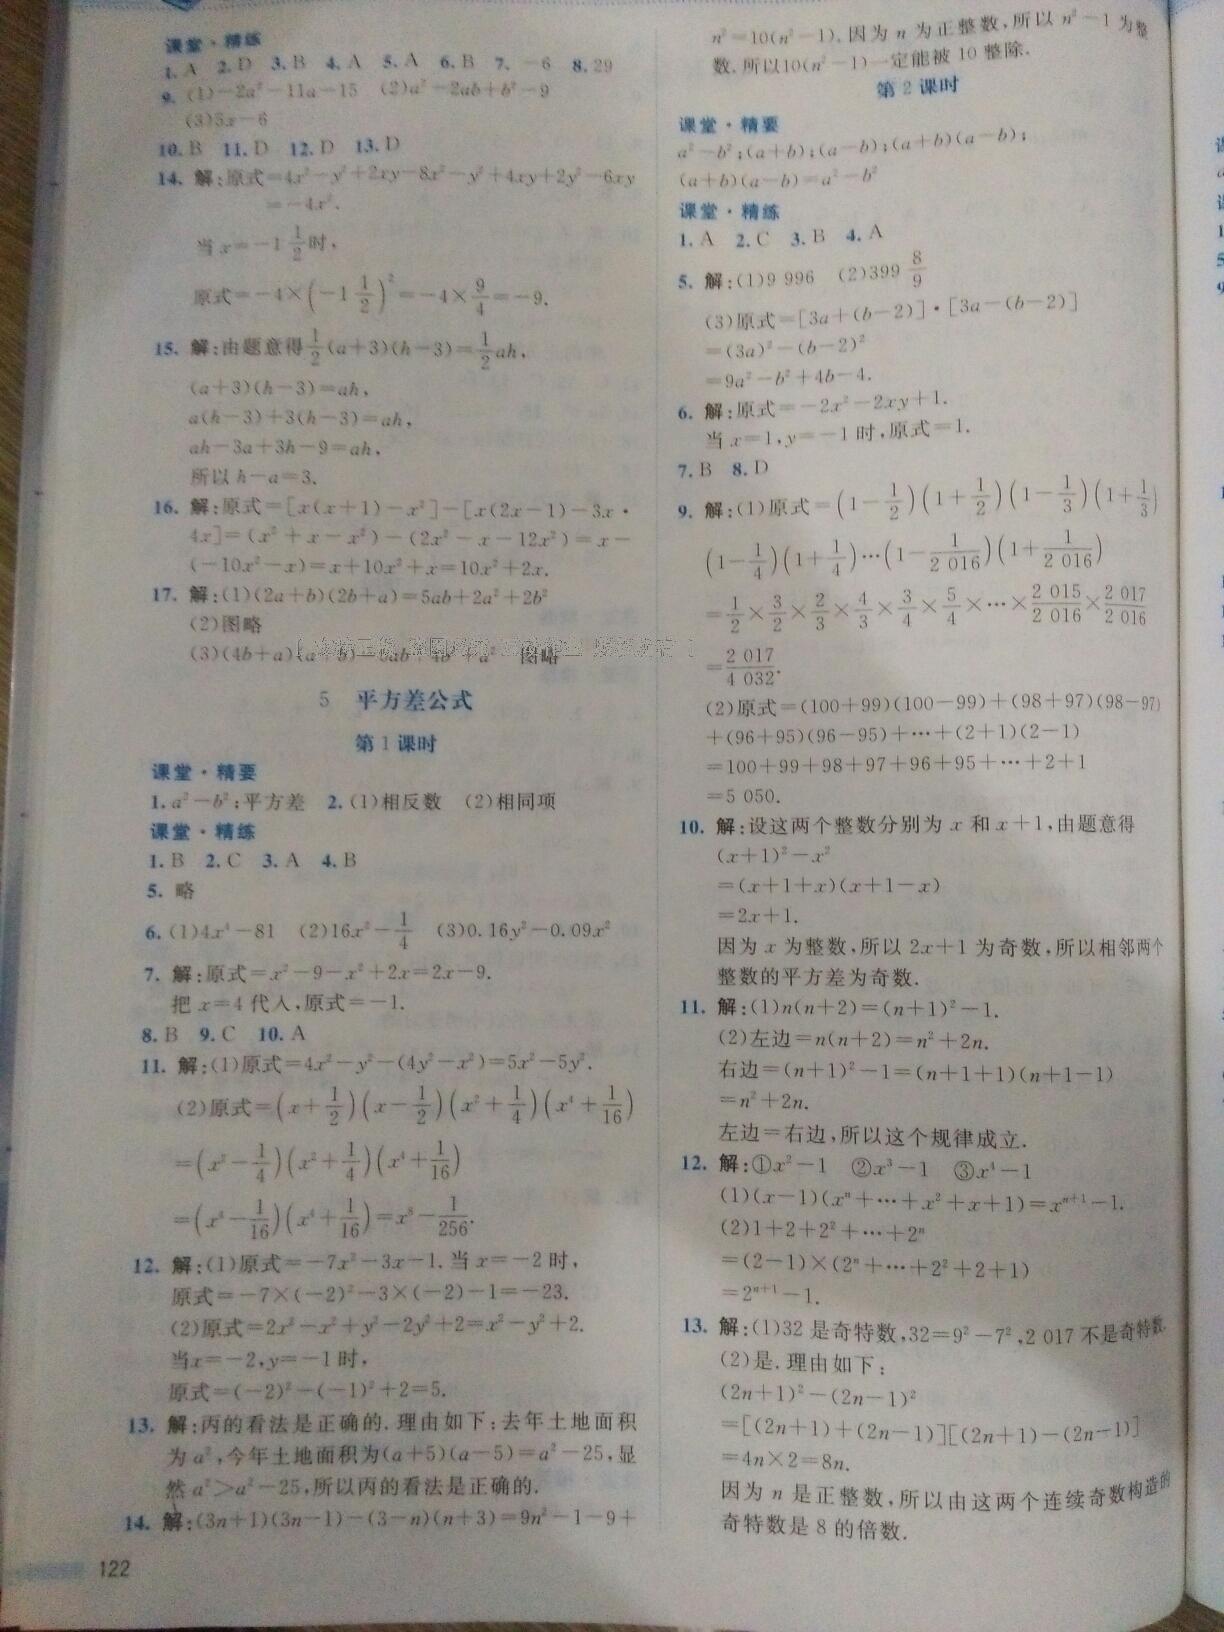 课堂·精练
1. A 2. D 3. B 4. A 5. A 6. B 7. -6 8. 29
9. (1)-2a²-11a-15 (2)a²-2ab+b²-9
(3)5x-6
10. B 11. D 12. D 13. D
14. 解:原式=4x²-y²+2xy-8x²-y²+4xy+2y²-6xy
=-4x².
当 x=-1 1/2 时,
原式=-4×(-1 1/2)²=-4×9/4=-9.
15. 解:由题意得 1/2(a+3)(h-3)=1/2ah,
(a+3)(h-3)=ah,
a(h-3)+3(h-3)=ah,
ah-3a+3h-9=ah,
所以 h-a=3.
16. 解:原式=[x(x+1)-x²]-[x(2x-1)-3x·
4x]=(x²+x-x²)-(2x²-x-12x²)=x-
(-10x²-x)=x+10x²+x=10x²+2x.
17. 解:(1)(2a+b)(2b+a)=5ab+2a²+2b²
(2)图略
(3)(4b+a)(a+b)=5ab+4b²+a² 图略
5 平方差公式
第1课时
课堂·精要
1. a²-b²;平方差 2. (1)相反数 (2)相同项
课堂·精练
1. B 2. C 3. A 4. B
5. 略
6. (1)4x⁴-81 (2)16x²-1/4 (3)0.16y²-0.09x²
7. 解:原式=x²-9-x²+2x=2x-9.
把 x=4 代入,原式=-1.
8. B 9. C 10. A
11. 解:(1)原式=4x²-y²-(4y²-x²)=5x²-5y².
(2)原式=(x+1/2)(x-1/2)(x²+1/4)(x⁴+1/16)
=(x²-1/4)(x²+1/4)(x⁴+1/16)
=(x⁴-1/16)(x⁴+1/16)=x⁸-1/256.
12. 解:(1)原式=-7x²-3x-1. 当 x=-2 时,
原式=-7×(-2)²-3×(-2)-1=-23.
(2)原式=2x²-x²+y²-2y²+2=x²-y²+2.
当x=-2,y=-1时,
原式=(-2)²-(-1)²+2=5.
13. 解:丙的看法是正确的. 理由如下:去年土地面积
为 a²,今年土地面积为(a+5)(a-5)=a²-25,显
然 a²>a²-25,所以丙的看法是正确的.
14. 解:(3n+1)(3n-1)-(3-n)(n+3)=9n²-1-9+
122
n²=10(n²-1). 因为 n 为正整数,所以 n²-1 为整
数. 所以10(n²-1)一定能被 10 整除.
第2课时
课堂·精要
a²-b²;(a+b);(a-b);(a+b)(a-b);
(a+b)(a-b)=a²-b²
课堂·精练
1. A 2. C 3. B 4. A
5. 解:(1)9 996 (2)399 8/9
(3)原式=[3a+(b-2)]·[3a-(b-2)]
=(3a)²-(b-2)²
=9a²-b²+4b-4.
6. 解:原式=-2x²-2xy+1.
当 x=1,y=-1 时,原式=1.
7. B 8. D
9. 解:(1)原式=(1-1/2)(1+1/2)(1-1/3)(1+1/3)
(1-1/4)(1+1/4)…(1-1/2 016)(1+1/2 016)
=1/2×3/2×2/3×4/3×3/4×5/4×…×2 015/2 016×2 017/2 016
=2 017/4 032.
(2)原式=(100+99)(100-99)+(98+97)(98-97)
+(96+95)(96-95)+…+(2+1)(2-1)
=100+99+98+97+96+95+…+2+1
=5 050.
10. 解:设这两个整数分别为 x 和 x+1,由题意得
(x+1)²-x²
=(x+1+x)(x+1-x)
=2x+1.
因为 x 为整数,所以 2x+1 为奇数,所以相邻两个
整数的平方差为奇数.
11. 解:(1)n(n+2)=(n+1)²-1.
(2)左边=n(n+2)=n²+2n.
右边=(n+1)²-1=(n+1+1)(n+1-1)
=n²+2n.
左边=右边,所以这个规律成立.
12. 解:①x²-1 ②x³-1 ③x⁴-1
(1)(x-1)(xⁿ+…+x²+x+1)=xⁿ⁺¹-1.
(2)1+2+2²+…+2ⁿ
=(2-1)×(2ⁿ+…+2²+2+1)
=2ⁿ⁺¹-1.
13. 解:(1)32 是奇特数,32=9²-7²,2 017 不是奇特数.
(2)是. 理由如下:
(2n+1)²-(2n-1)²
=[(2n+1)+(2n-1)][(2n+1)-(2n-1)]
=4n×2=8n.
因为 n 是正整数,所以由这两个连续奇数构造的
奇特数是 8 的倍数.